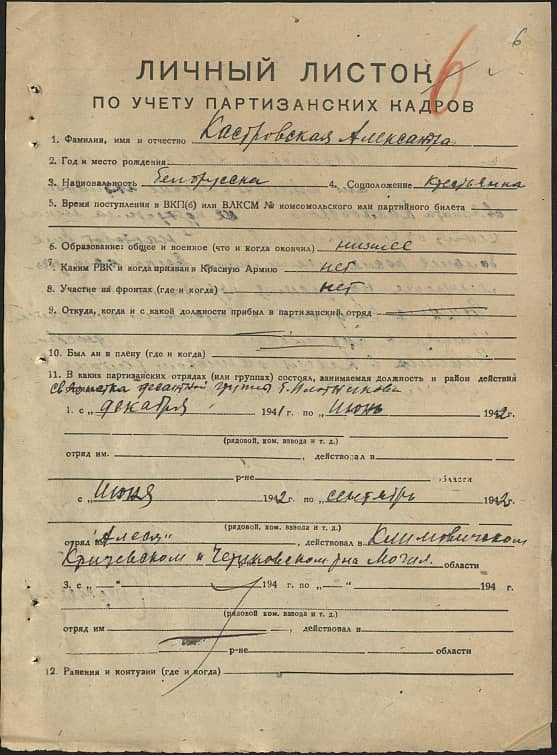 6
ЛИЧНЫЙ ЛИСТОК
6
ПО УЧЕТУ ПАРТИЗАНСКИХ КАДРОВ
1. Фамилия, имя и отчество Кастровская Александра
2. Год и место рождения
3. Национальность белорусска 4. Соцположение крестьянка
5. Время поступления в ВКП(б) или ВЛКСМ № комсомольского или партийного билета
6. Образование: общее и военное (что и когда окончил) низшее
7. Каким РВК и когда призван в Красную Армию нет
8. Участие на фронтах (где и когда) нет
9. Откуда, когда и с какой должности прибыл в партизанский отряд
10. Был ли в плену (где и когда)
11. В каких партизанских отрядах (или группах) состоял, занимаемая должность и район действия
десантной группы т. Плотникова
1. с „ декабря 1941 г. по „ июнь 1942 г.
(рядовой, ком. взвода и т. д.)
отряд им. , действовал в
р-не области
с „ июня 1942 г. по „ сентябрь 1942 г.
(рядовой, ком. взвода и т. д.)
отряд „Алеся" , действовал в Климовичском
Кричевском и Чериковском р-на Могил. области
3. с „ “ 194 г. по „ “ 194 г.
(рядовой, ком. взвода и т. д.)
отряд им , действовал в
р-не области
12. Ранения и контузии (где и когда)